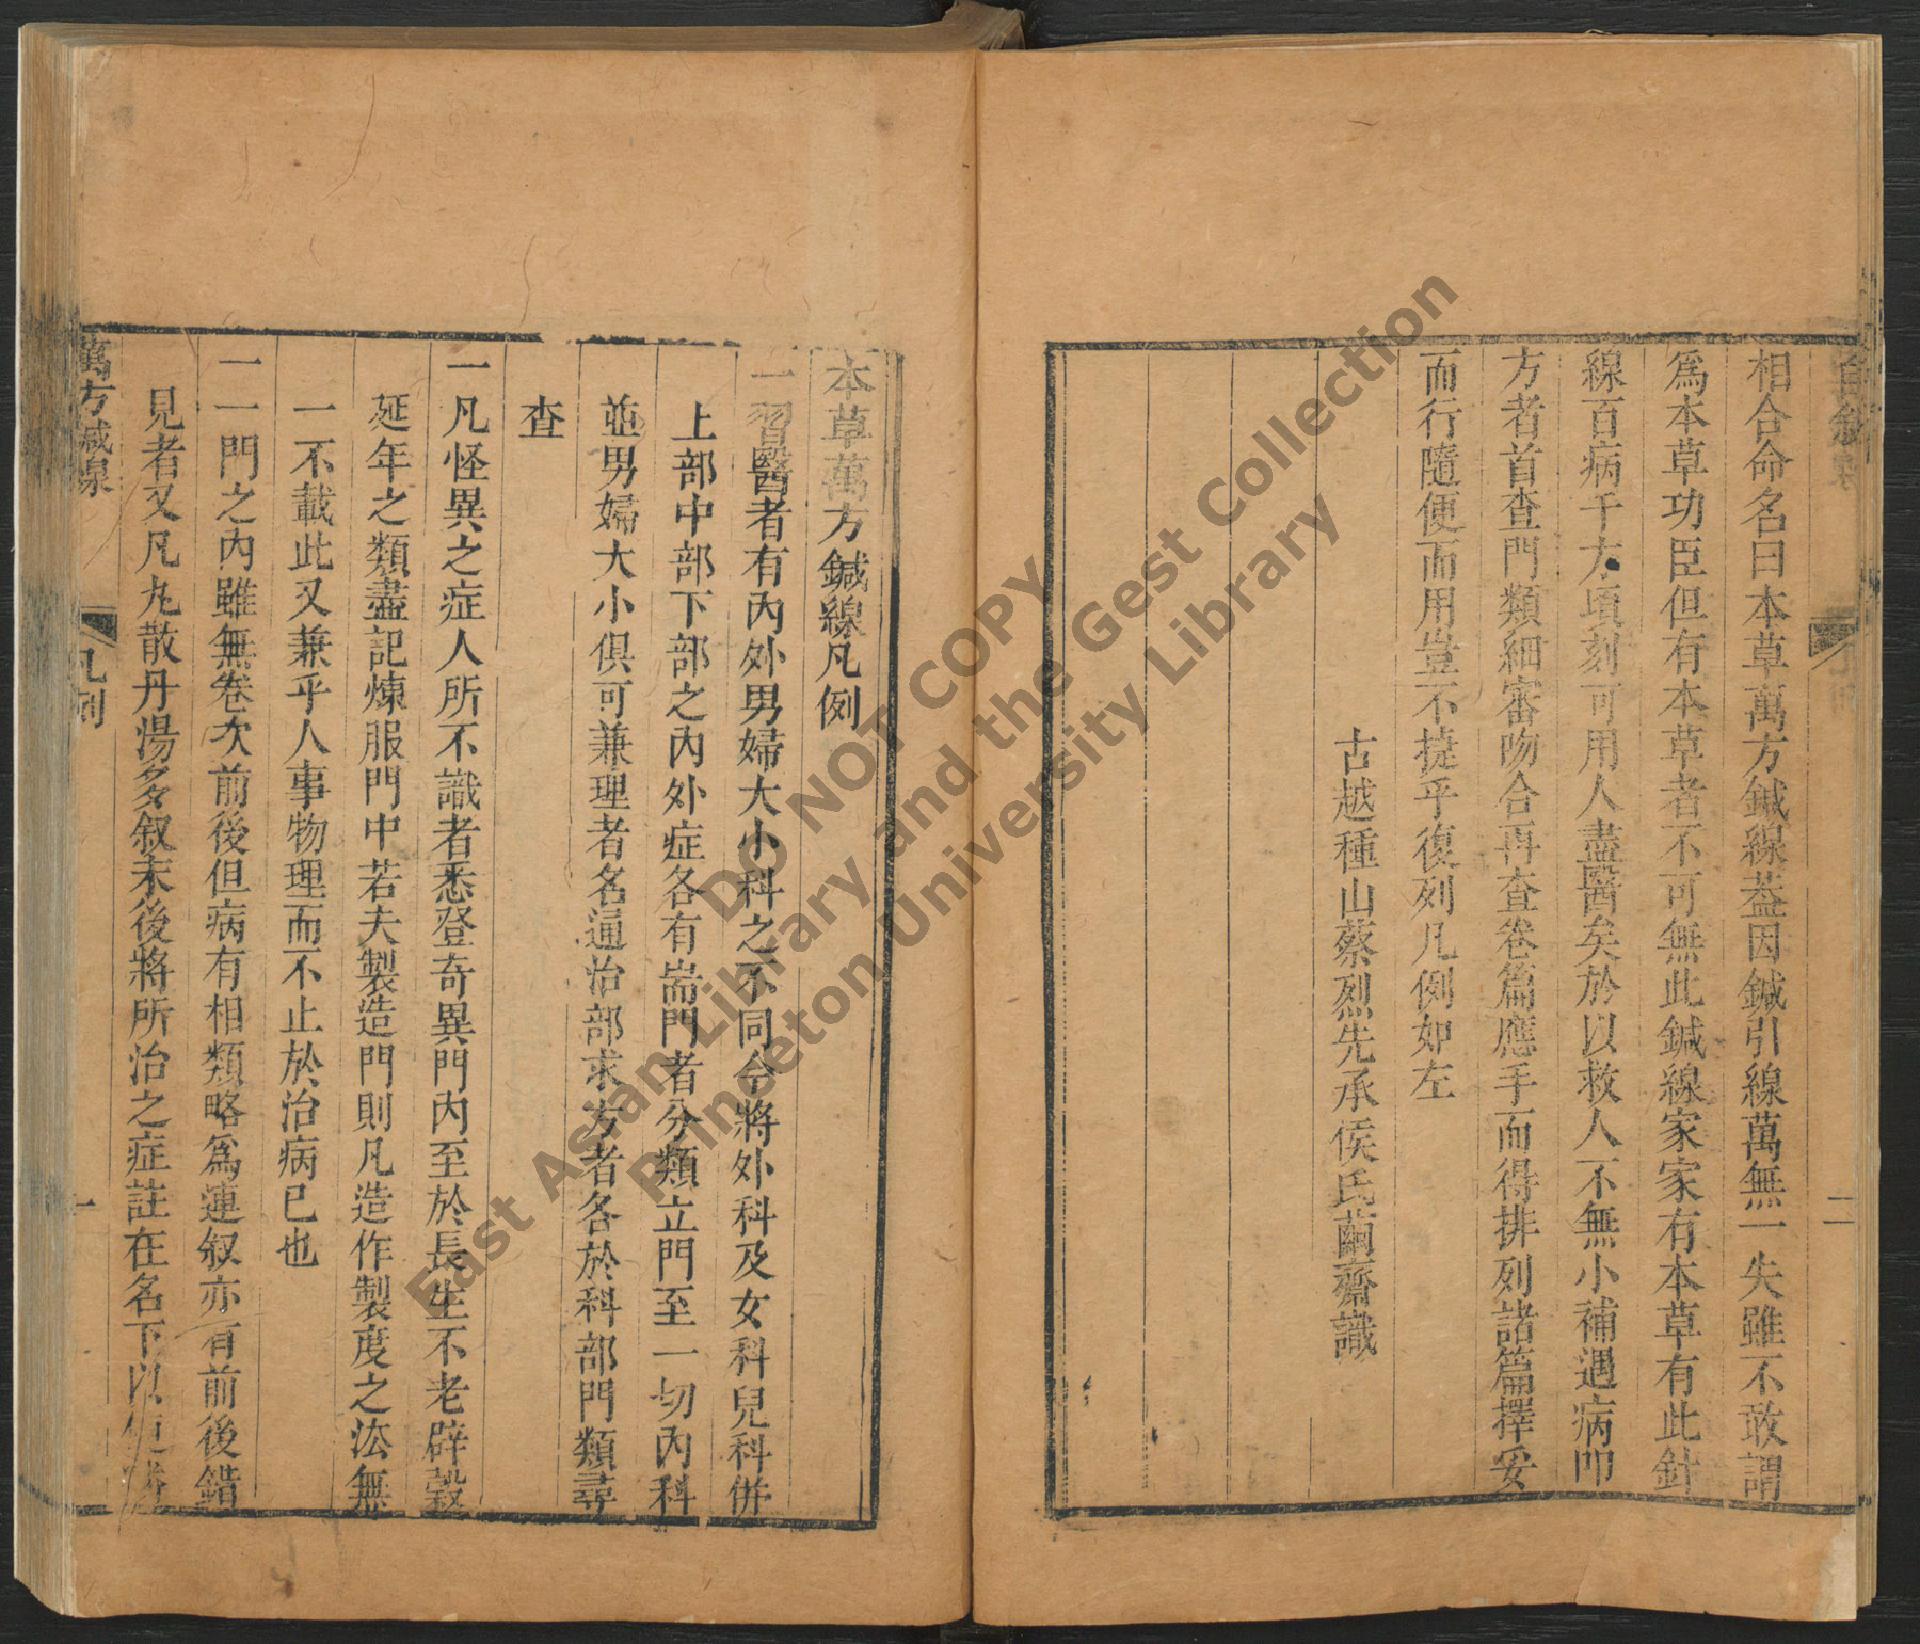 相合命名曰本草萬方鍼線葢因鍼引線萬無一失雖不敢謂
爲本草功臣但有本草者不可無此鍼線家家有本草有此針
線百病千方頃刻可用人盡醫矣於以救人不無小補遇病卽
方者首查門類細審吻合再查卷篇應手而得排列諸篇擇妥
而行隨便而用豈不捷乎復列凡例如左
古越種山蔡烈先承侯氏繭齋識
二
本草萬方鍼線凡例
一習醫者有內外男婦大小科之不同今將外科及女科兒科併
上部中部下部之內外症各有耑門者分類立門至一切內科
並男婦大小俱可兼理者名通治部求方者各於科部門類尋
查
一凡怪異之症人所不識者悉登奇異門內至於長生不老辟穀
延年之類盡記煉服門中若夫製造門則凡造作製度之法無
一不載此又兼乎人事物理而不止於治病已也
一一門之內雖無卷次前後但病有相類略爲連叙亦有前後錯
見者又凡丸散丹湯多叙末後將所治之症註在名下以
萬方鍼線
凡例
一
DO NOT COPY
East Asian Library and the Gest Collection
Princeton University Library